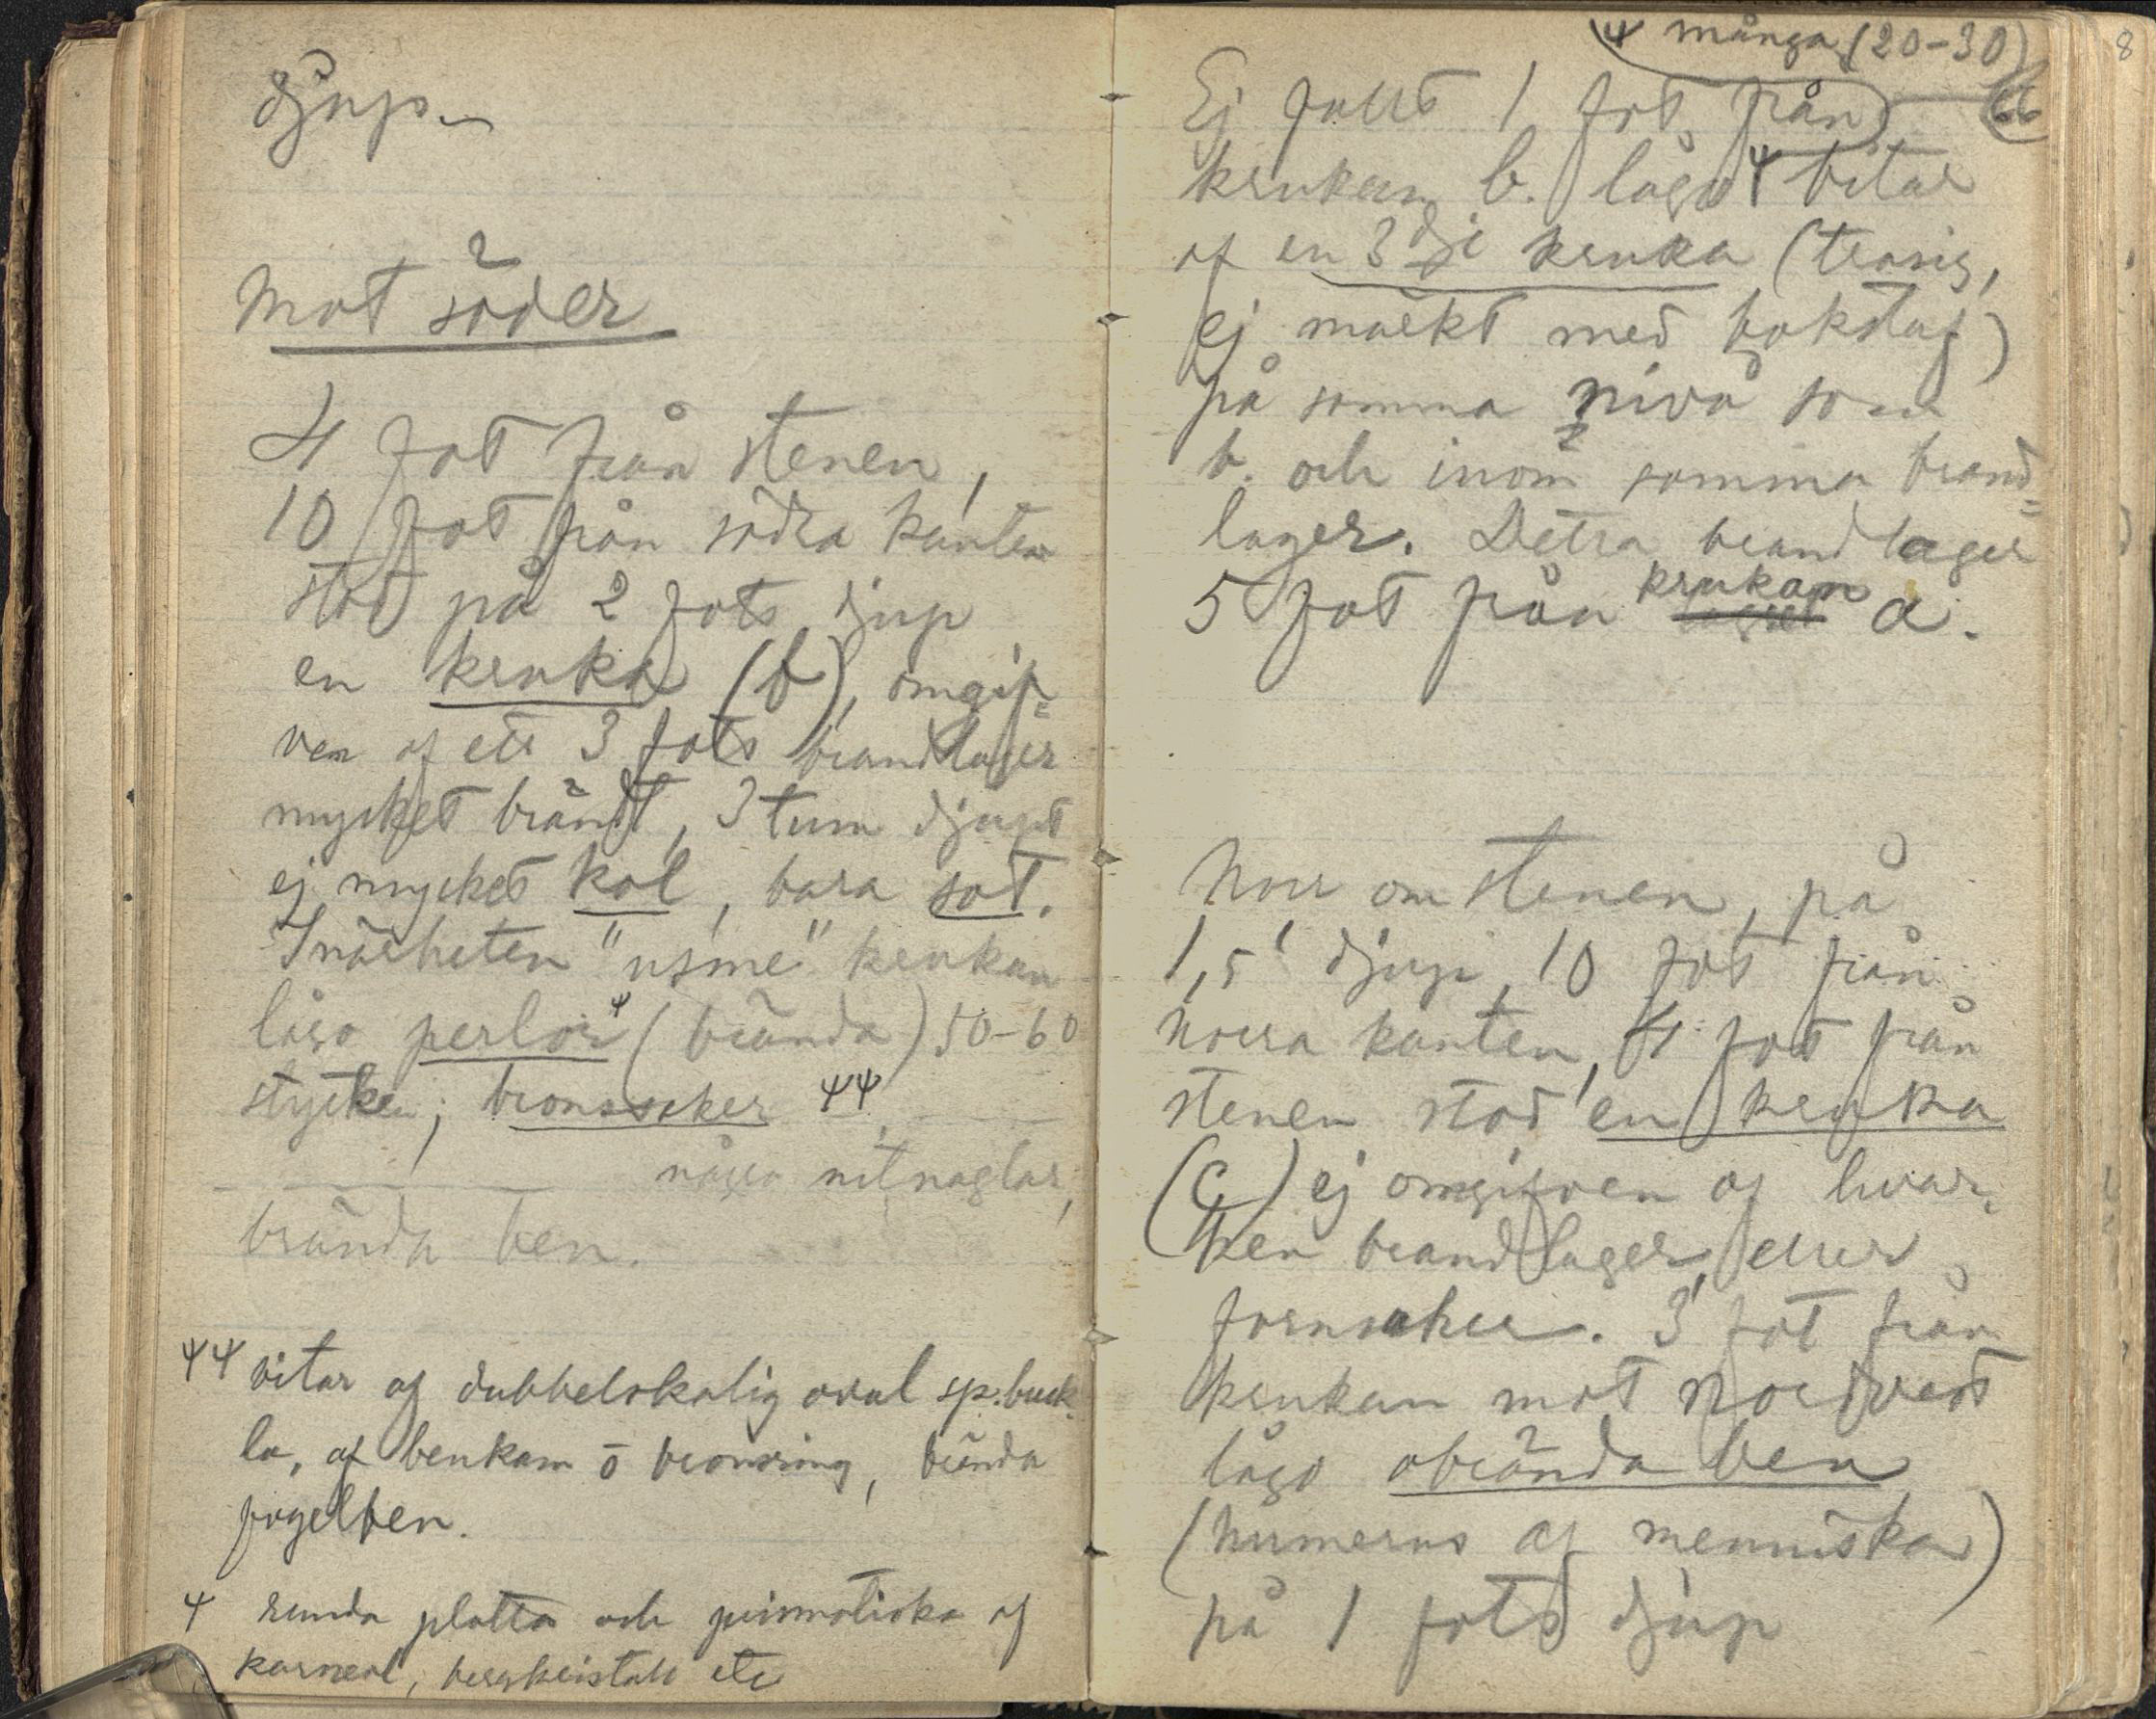 djup.
Mot söder
4 fot från stenen,
10 fot från södra kanten
stod på 2 fots djup
en kruka (b), omgif=
ven af ett 3 fots brandlager
mycket brändt, 3 tum djupt
ej mycket kol, bara sot.
I närheten "utme" krukan
lågo perlor Ψ (brända) 50-60
stycken; bronssaker ΨΨ,
några nitnaglar,
brända ben.
ΨΨ bitar af dubbelskalig oval sp.buck-
la, af benkam o bronsring, brända
fogelben.
Ψ runda platta och prismatiska af
karneol, bergkristall etc
Ψ många (20-30)
66
8
Ej fullt 1 fot från
krukan b. lågo Ψ bitar
af en 3dje kruka (trasig,
ej märkt med bokstaf)
på samma nivå som
b. och inom samma brand=
lager. Detta brandlager
5 fot från krukan a.
Norr om stenen, på
1,5' djup, 10 fot från
norra kanten, 4 fot från
stenen stod en kruka
(c) ej omgifven af hvar-
ken brandlager eller
fornsaker. 3 fot från
krukan mot nordvest
lågo obrända ben
(humerus af menniska)
på 1 fots djup